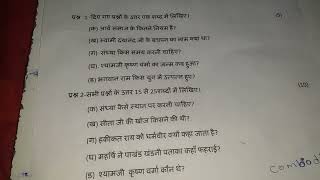 प्रश्न 1-दिए गए प्रश्नों के उत्तर एक शब्द में लिखिए। (5)
(क) आर्य समाज के कितने नियम है?
(ख) स्वामी दयानंद जी के बचपन का नाम क्या था?
(ग) संध्या किस समय करनी चाहिए?
(घ) श्यामजी कृष्ण वर्मा का जन्म कब हुआ?
(ङ) भगवान राम किस युग में उत्पन्न हुए?
प्रश्न 2-सभी प्रश्नों के उत्तर 15 से 25 शब्दों में लिखिए। (10)
(क) संध्या कैसे स्थान पर करनी चाहिए?
(ख) सीता जी की खोज किसने की थी?
(ग) हकीकत राय को धर्मवीर क्यों कहा जाता है?
(घ) महर्षि ने पाखंड खंडनी पताका कहाँ फहराई?
(ङ) श्यामजी कृष्ण वर्मा कौन थे?